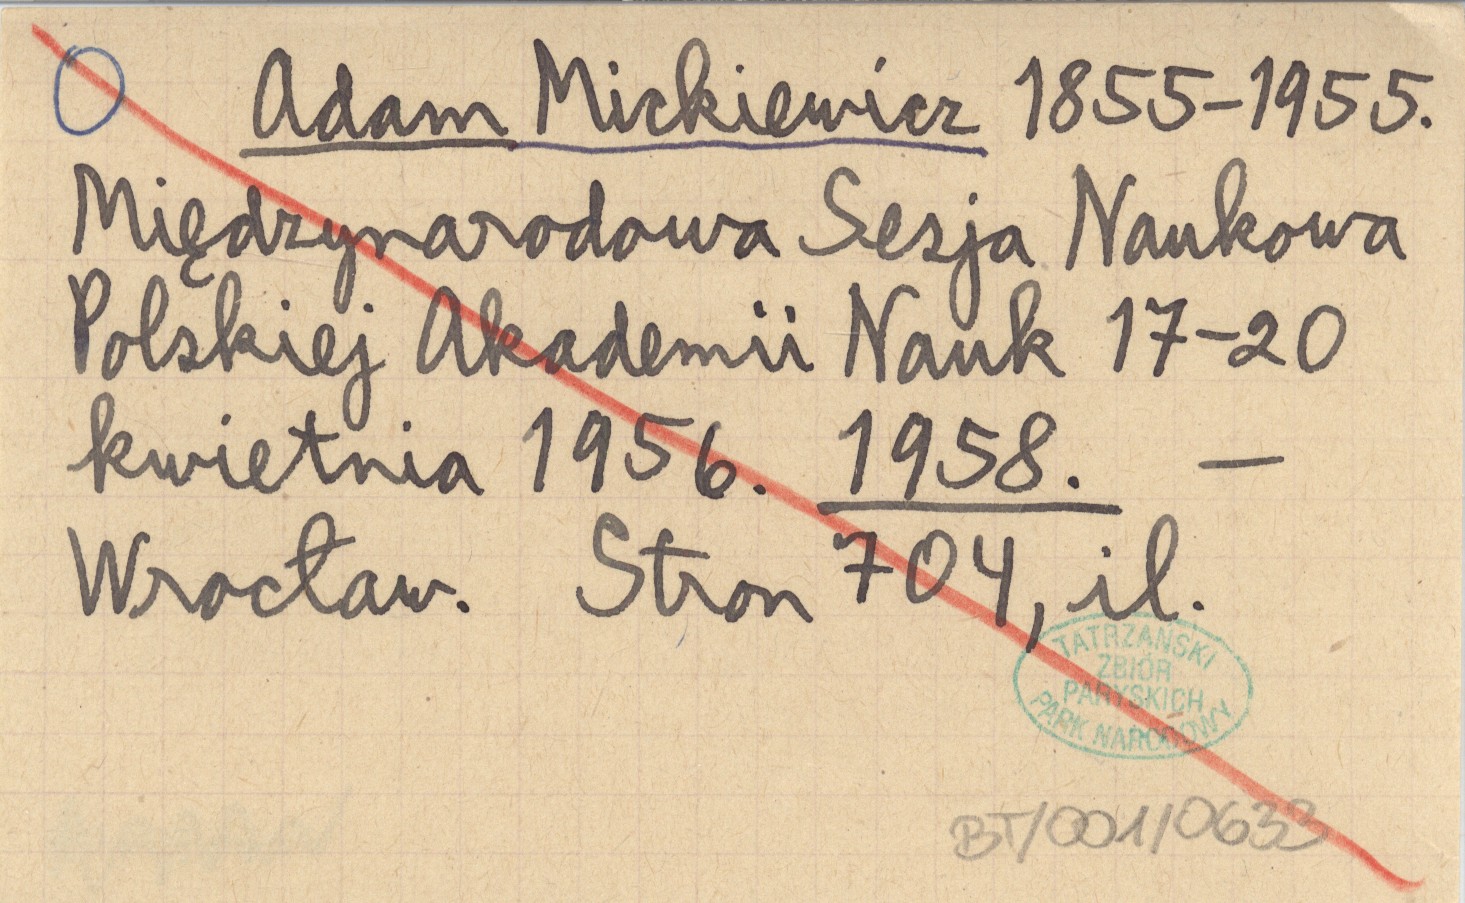 Adam Mickiewicz 1855-1955.
Międzynarodowa Sesja Naukowa
Polskiej Akademii Nauk 17-20
kwietnia 1956. 1958. —
Wrocław. Stron 704, il.
TATRZAŃSKI
ZBIÓR
PARYSKICH
PARK NARODOWY
BT/001/0633